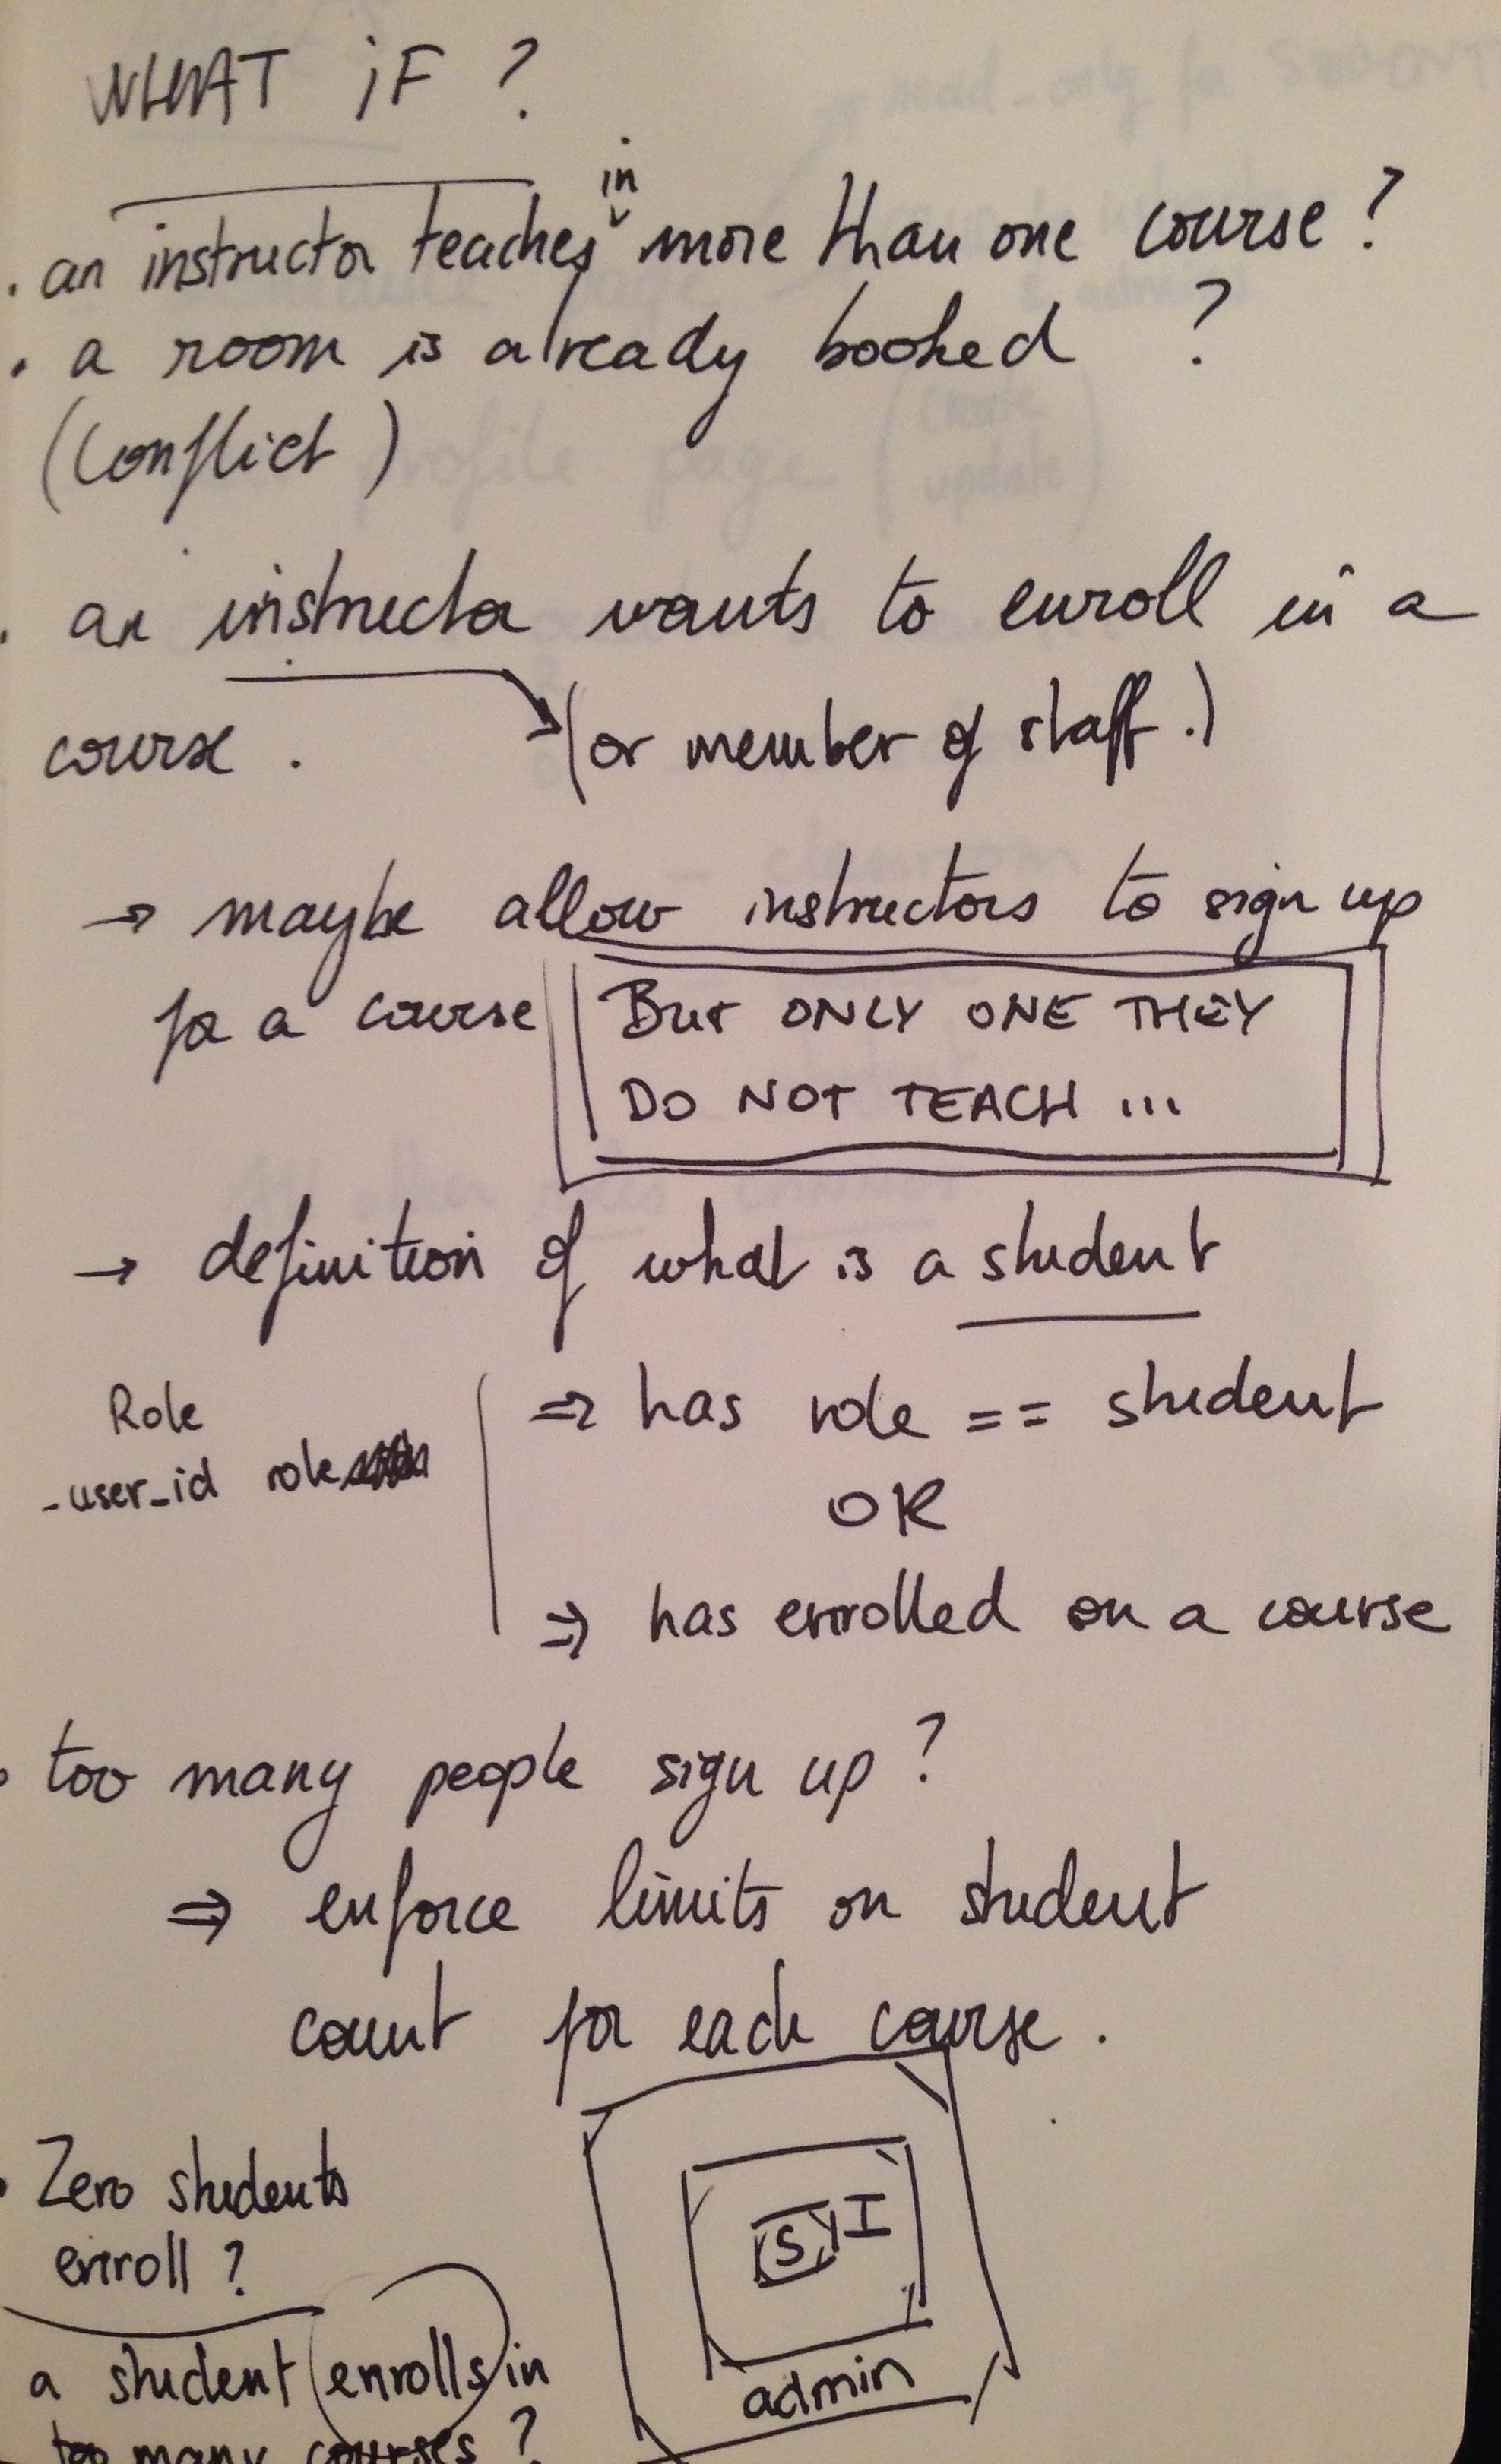 WHAT iF ?
in
. an instructor teaches more than one course ?
. a room is already booked ?
(Conflict)
. an instructor wants to enroll in a
course . (or member of staff.)
→ maybe allow instructors to sign up
for a course BUT ONLY ONE THEY
DO NOT TEACH ...
→ definition of what is a student
Role ⇒ has role == student
- user_id role
OR
⇒ has enrolled on a course
. too many people sign up ?
⇒ enforce limits on student
count for each course .
. Zero students
enroll ?
S I
a student enrolls in
admin
too many courses ?